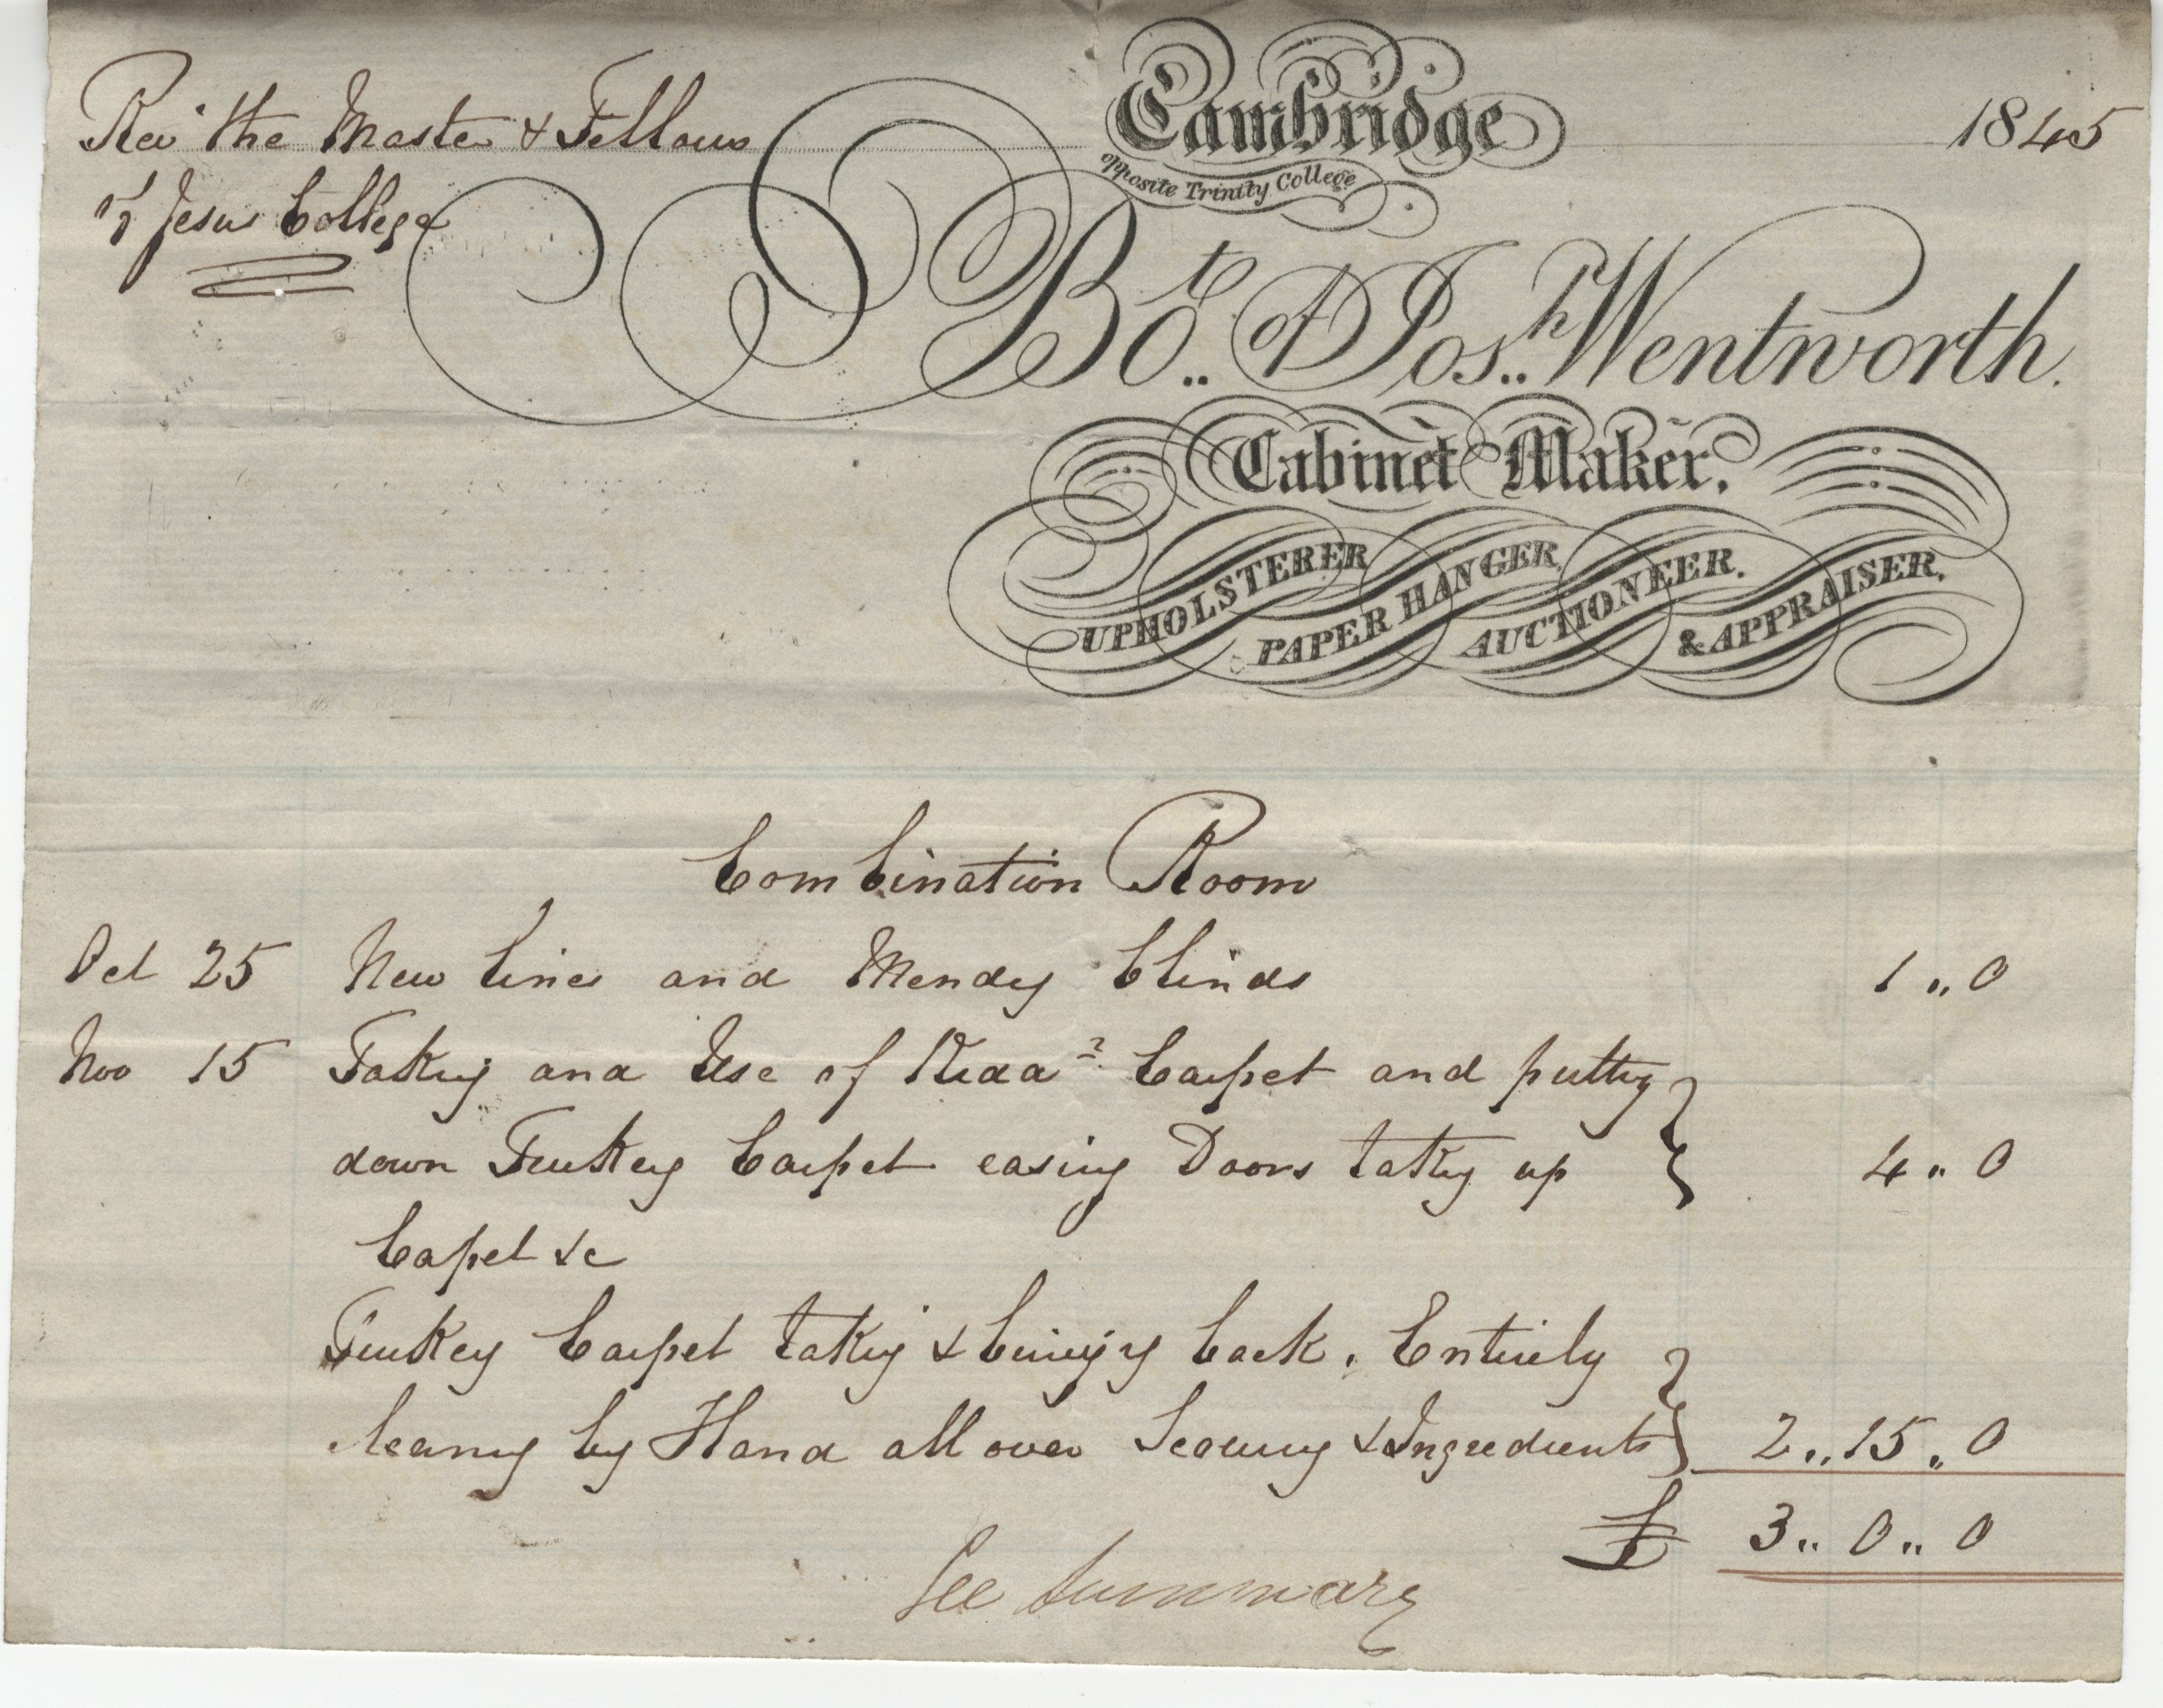 Rev the Master & Fellows
of Jesus College
Cambridge 1845
opposite Trinity College
Bot.. of Jos..h Wentworth.
Cabinet Maker.
UPHOLSTERER PAPER HANGER AUCTIONEER. & APPRAISER.
Combination Room
Oct 25 New lines and Mendg blinds 1 ,, 0
Nov 15 Takig and Use of Kidd Carpet and puttig
down Turkey Carpet easing Doors takg up 4 ,, 0
Capet &c
Turkey Carpet takig & bringg back. Entirely
cleang by Hand all over Scourg & Ingredients 2 ,, 15 ,, 0
£ 3 ,, 0 ,, 0
See Summary